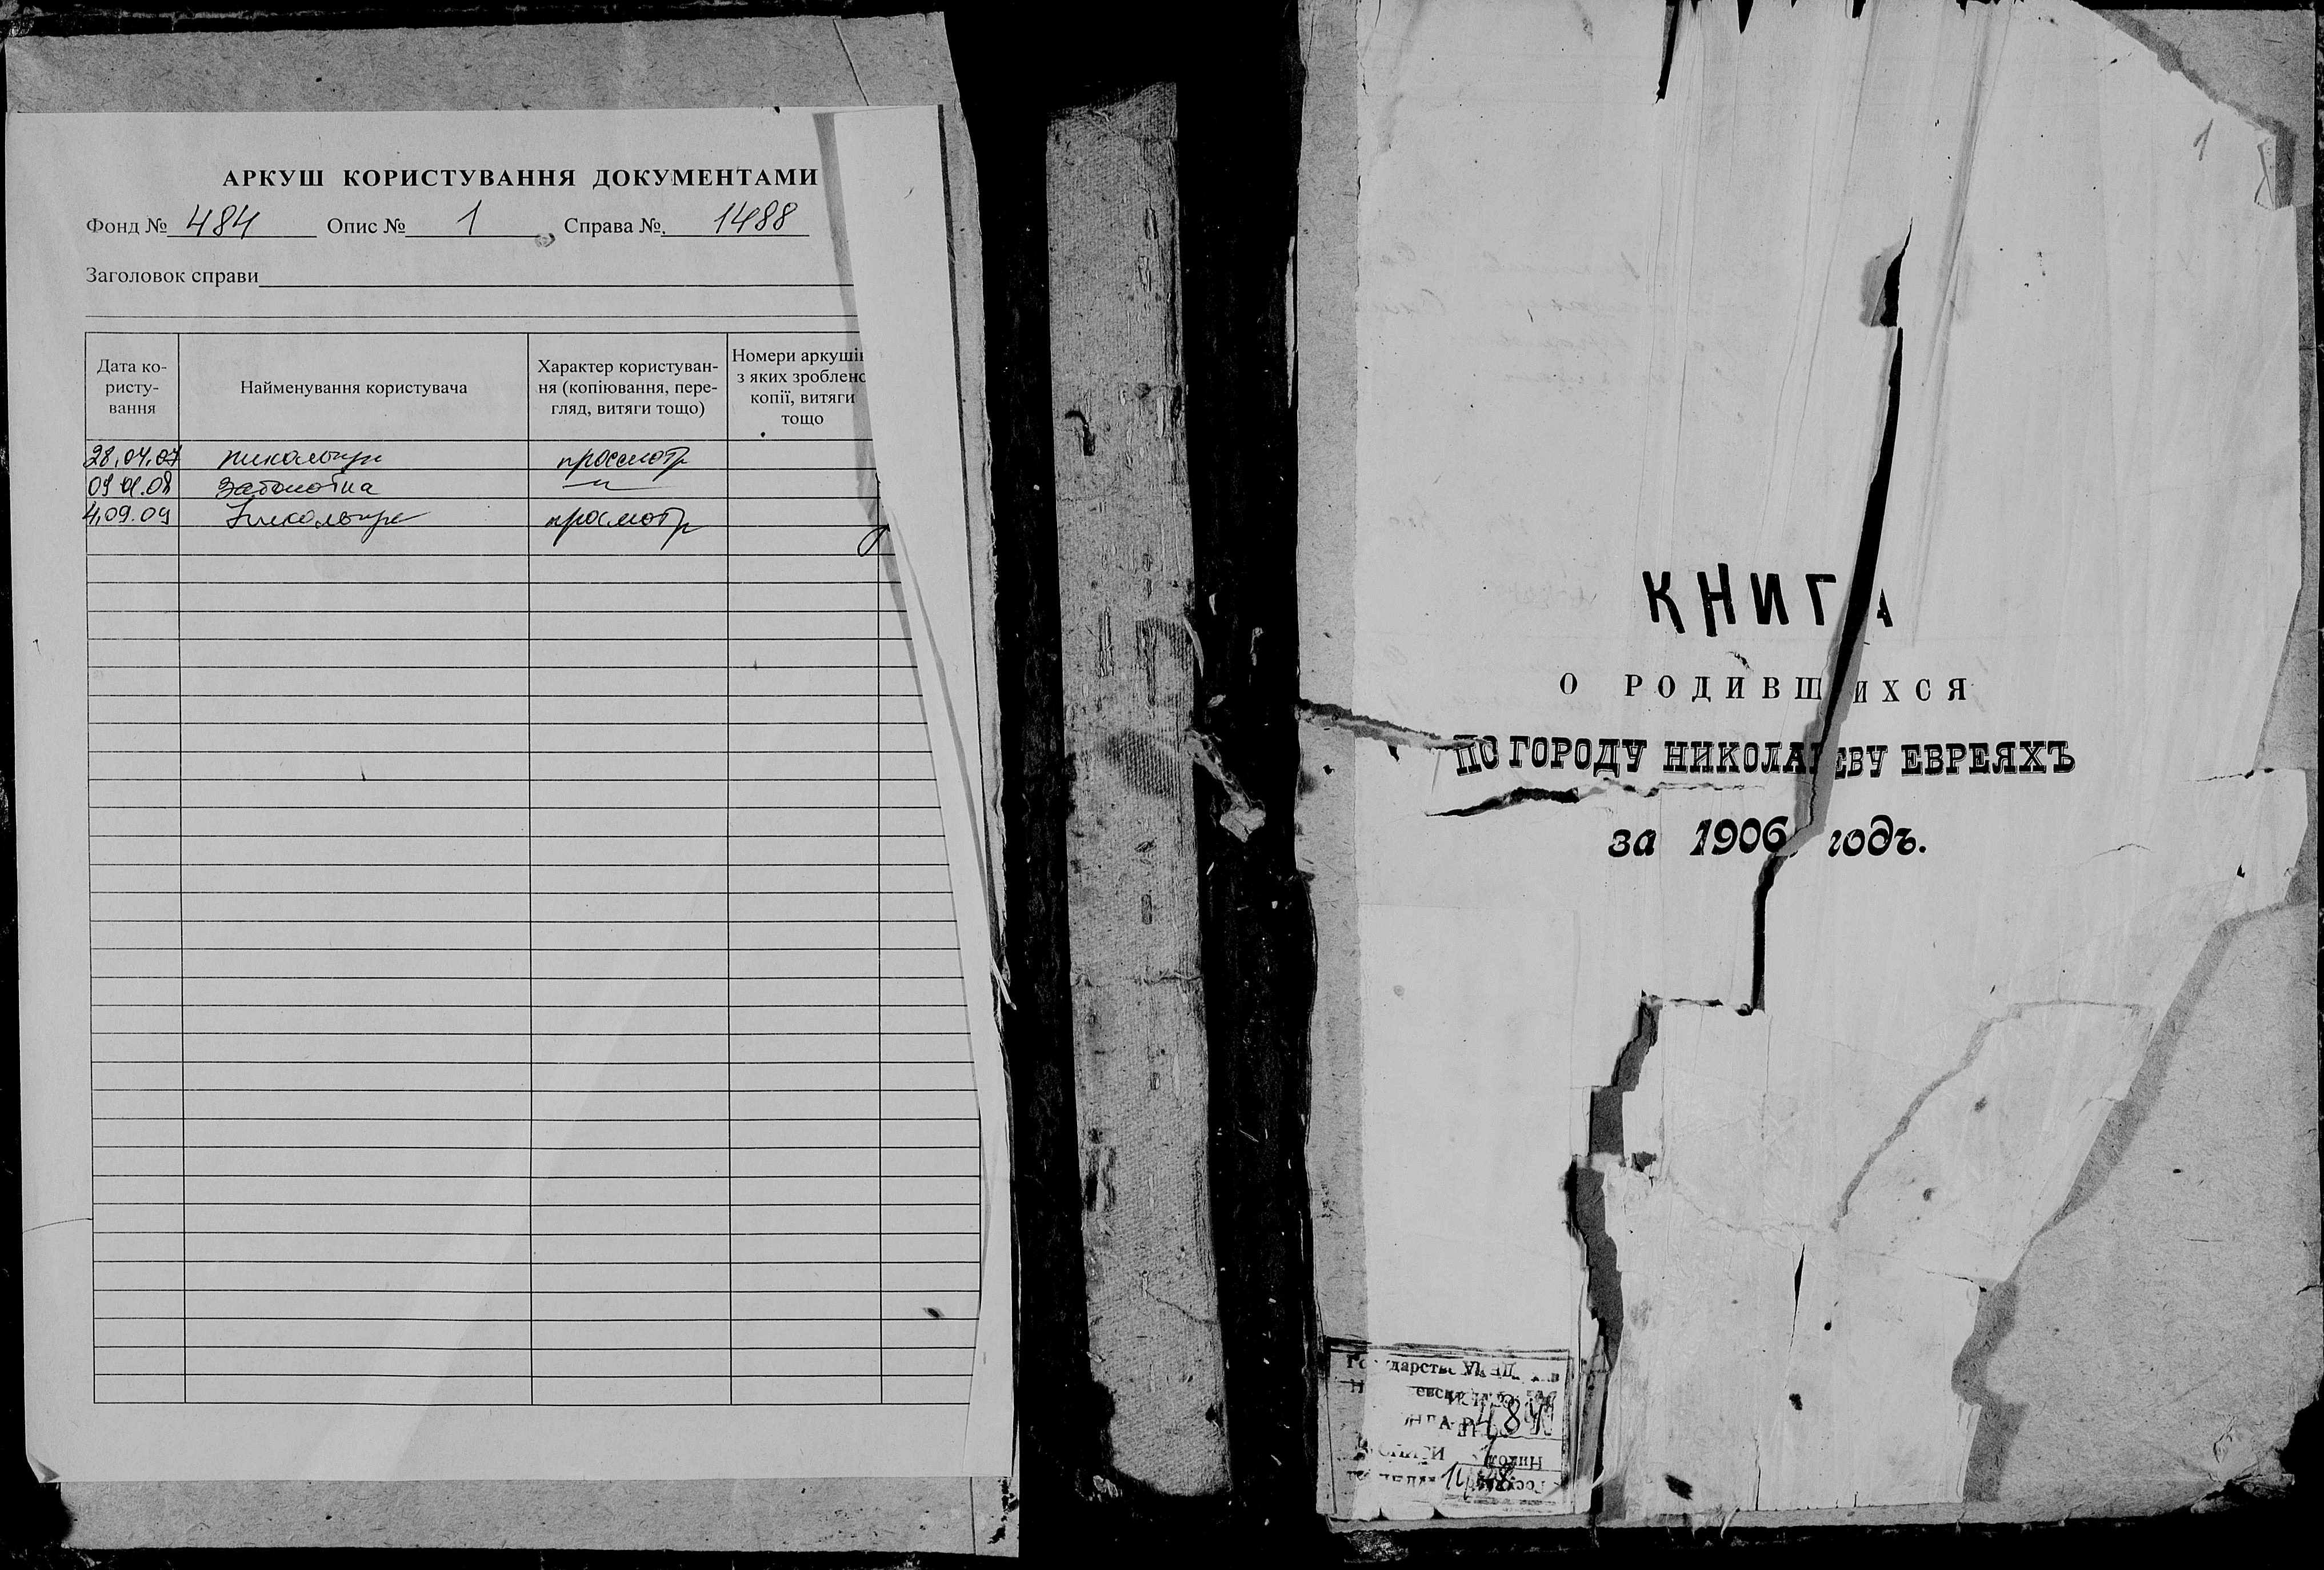 АРКУШ КОРИСТУВАННЯ ДОКУМЕНТАМИ
Фонд № 484 Опис № 1 Справа № 1488
Заголовок справи
Дата ко-
ристу-
вання
Найменування користувача
Характер користуван-
ня (копіювання, пере-
гляд, витяги тощо)
Номери аркушів
з яких зроблено
копії, витяги
тощо
28.04.07 просмотр
09.01.08
4.09.09 просмотр
1
КНИГА
О РОДИВШИХСЯ
ПО ГОРОДУ НИКОЛАЕВУ ЕВРЕЯХЪ
за 1906 годъ.
484
1488